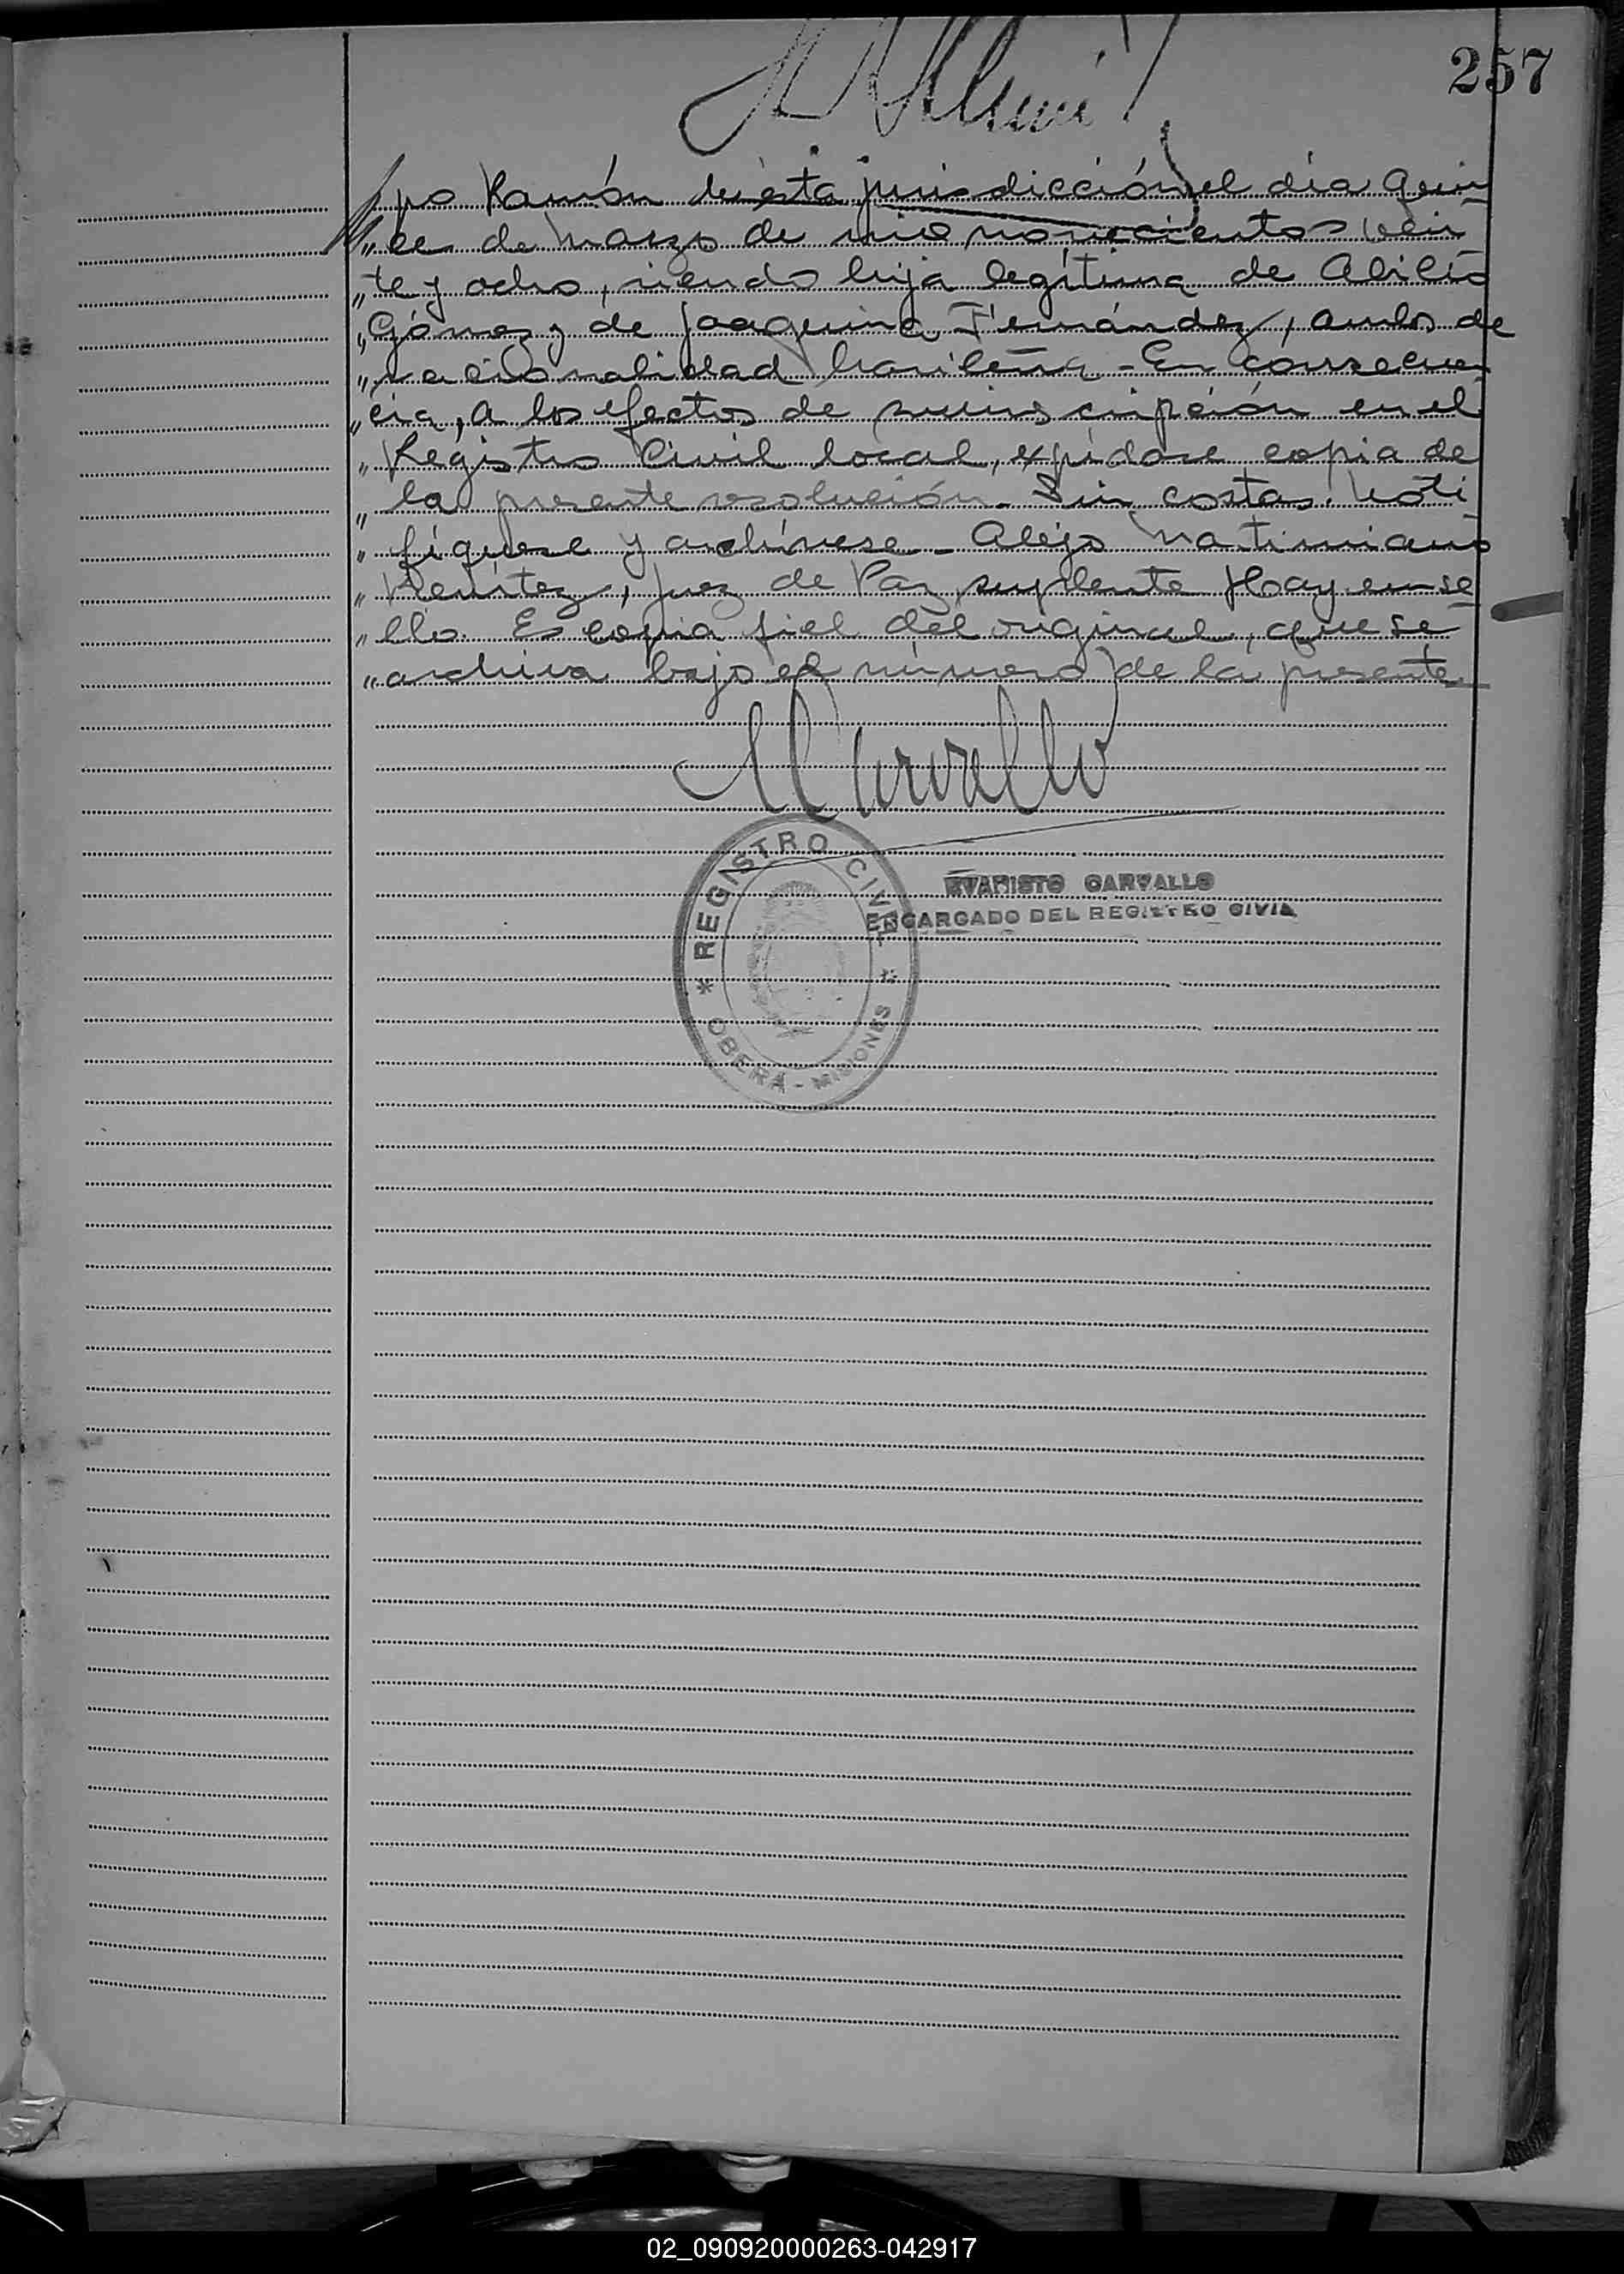 257
po Ramón de esta jurisdicción el día quin
„ ce de Marzo de mil novecientos vein
„ te y ocho, siendo hija legítima de Abilio
„ Gómez y de Joaquina Fernández, ambos de
„ nacionalidad brasileña - En consecuen
„ cia, a los efectos de su inscripción en el
„ Registro Civil local, expídase copia de
„ la presente resolución - Sin costas. Noti
„ fíquese y archívese - Alejo
„ Benítez, Juez de Paz suplente Hay un se
„ llo. Es copia fiel del original, que se
„ archiva bajo el número de la presente
Carvallo
REGISTRO CIVIL
EVARISTO CARVALLO
ENCARGADO DEL REGISTRO CIVIL
OBERÁ - MISIONES
02_090920000263-042917